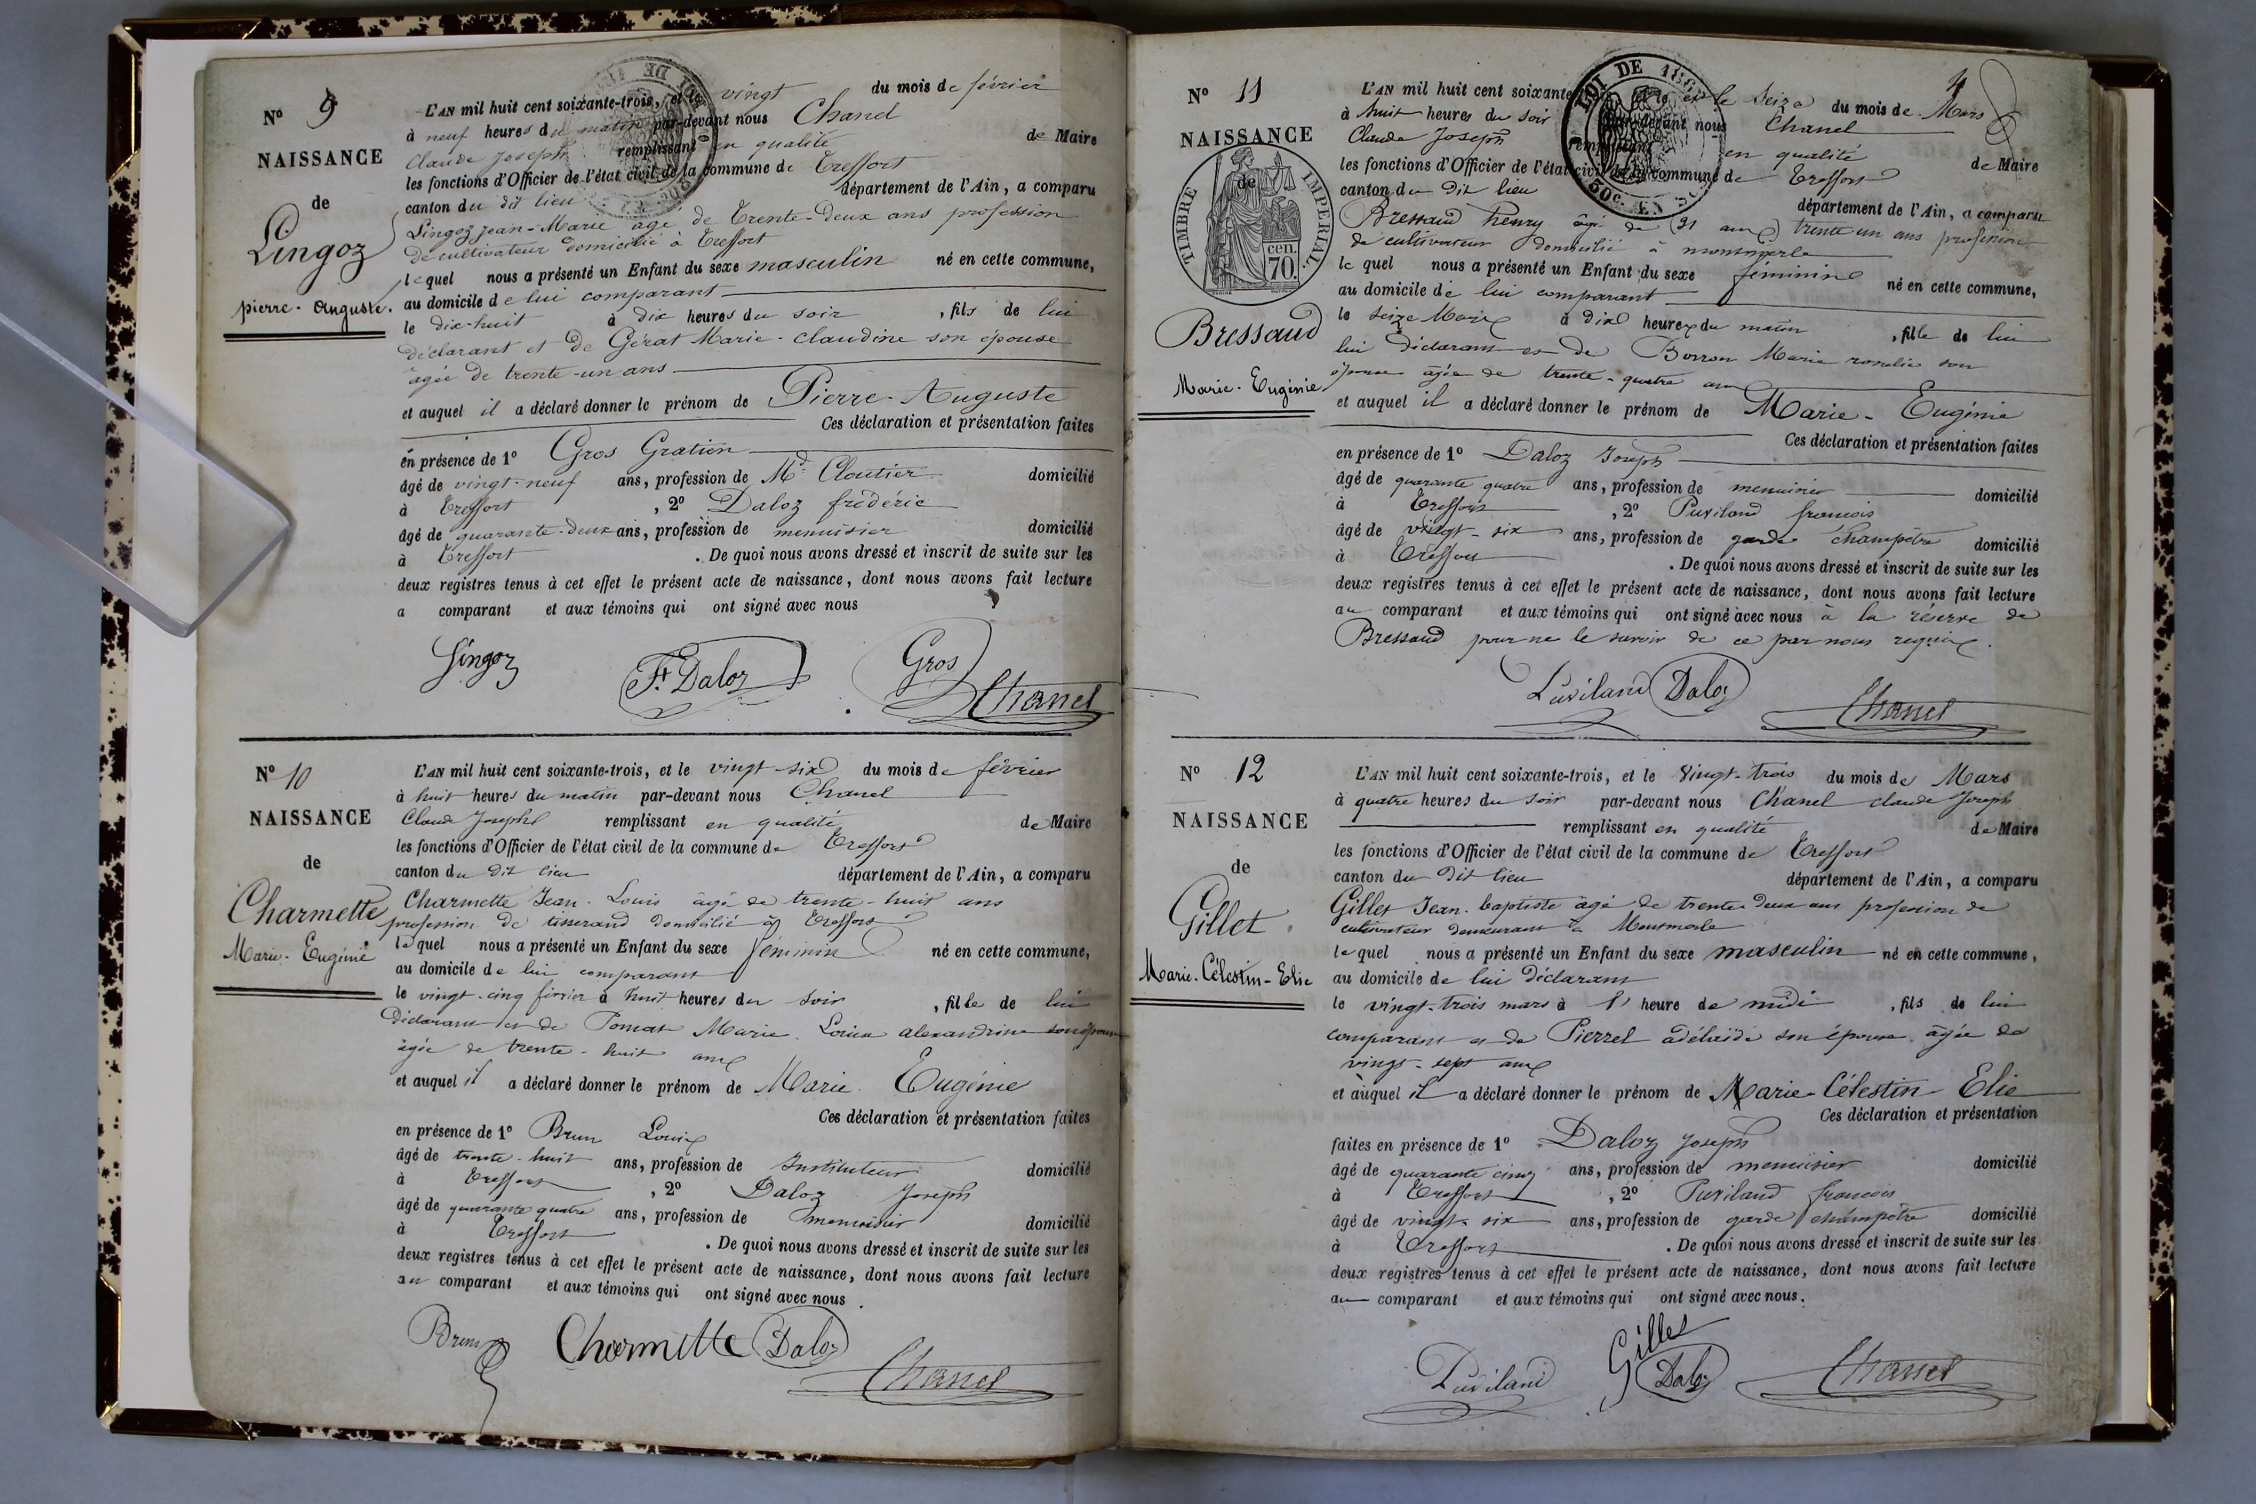 Nº 9
NAISSANCE
de
Lingoz
pierre-Auguste.
L'AN mil huit cent soixante-trois, et le vingt du mois de février
à neuf heures du matin par-devant nous Chanel
Claude Joseph remplissant en qualité de Maire
les fonctions d'Officier de l'état civil de la commune de Treffort
canton du dit lieu département de l'Ain, a comparu
Lingoz Jean-Marie agé de Trente-deux ans profession
de cultivateur domicilié à Treffort
lequel nous a présenté un Enfant du sexe masculin né en cette commune,
au domicile de lui comparant
le dix-huit à dix heures du soir, fils de lui
déclarant et de Gérat Marie-Claudine son épouse
âgée de trente-un ans
et auquel il a déclaré donner le prénom de Pierre-Auguste
Ces déclaration et présentation faites
en présence de 1º Gros Gratien
âgé de vingt-neuf ans, profession de Md Cloutier domicilié
à Treffort, 2º Daloz frédéric
âgé de quarante-deux ans, profession de menuisier domicilié
à Treffort. De quoi nous avons dressé et inscrit de suite sur les
deux registres tenus à cet effet le présent acte de naissance, dont nous avons fait lecture
a comparant et aux témoins qui ont signé avec nous
Lingoz F. Daloz Gros
Chanel
Nº 10
NAISSANCE
de
Charmette
Marie-Eugénie
L'AN mil huit cent soixante-trois, et le vingt-six du mois de février
à huit heures du matin par-devant nous Chanel
Claude Joseph remplissant en qualité de Maire
les fonctions d'Officier de l'état civil de la commune de Treffort
canton du dit lieu département de l'Ain, a comparu
Charmette Jean-Louis âgé de trente-huit ans
profession de tisserand domicilié à Treffort
lequel nous a présenté un Enfant du sexe féminin né en cette commune,
au domicile de lui comparant
le vingt-cinq février à huit heures du soir, fille de lui
déclarant et de Marie Louise alexandrine son épouse
âgée de trente-huit ans
et auquel il a déclaré donner le prénom de Marie Eugénie
Ces déclaration et présentation faites
en présence de 1º Brun Louis
âgé de trente-huit ans, profession de Instituteur domicilié
à Treffort, 2º Daloz Joseph
âgé de quarante quatre ans, profession de menuisier domicilié
à Treffort. De quoi nous avons dressé et inscrit de suite sur les
deux registres tenus à cet effet le présent acte de naissance, dont nous avons fait lecture
au comparant et aux témoins qui ont signé avec nous.
Brun Charmette Daloz
Chanel
4
Nº 11
NAISSANCE
de
TIMBRE IMPERIAL
cen. 70.
Bressaud
Marie-Eugénie
LOI DE 186
50c. EN S
L'AN mil huit cent soixante et le Seize du mois de Mars
à huit heures du soir par-devant nous Chanel
Claude Joseph remplissant en qualité de Maire
les fonctions d'Officier de l'état civil de la commune de Treffort
canton du dit lieu département de l'Ain, a comparu
Bressaud henry âgé de 31 ans trente un ans profession
de cultivateur domicilié à montmerle
lequel nous a présenté un Enfant du sexe féminin né en cette commune,
au domicile de lui comparant
le seize Mars à dix heures du matin, fille de lui
lui déclarant et de Borron Marie rosalie son
épouse âgée de trente-quatre ans
et auquel il a déclaré donner le prénom de Marie-Eugénie
Ces déclaration et présentation faites
en présence de 1º Daloz Joseph
âgé de quarante quatre ans, profession de menuisier domicilié
à Treffort, 2º Puviland francois
âgé de vingt-six ans, profession de garde champêtre domicilié
à Treffort. De quoi nous avons dressé et inscrit de suite sur les
deux registres tenus à cet effet le présent acte de naissance, dont nous avons fait lecture
au comparant et aux témoins qui ont signé avec nous à la réserve de
Bressaud pour ne le savoir de ce par nous requis.
Puviland Daloz Chanel
Nº 12
NAISSANCE
de
Gillet
Marie-Célestin-Elie
L'AN mil huit cent soixante-trois, et le Vingt-trois du mois de Mars
à quatre heures du soir par-devant nous Chanel claude Joseph
remplissant en qualité de Maire
les fonctions d'Officier de l'état civil de la commune de Treffort
canton du dit lieu département de l'Ain, a comparu
Gillet Jean-baptiste âgé de trente deux ans profession de
cultivateur demeurant à Montmerle
lequel nous a présenté un Enfant du sexe masculin né en cette commune,
au domicile de lui déclarant
le vingt-trois mars à 1 heure de midi, fils de lui
comparant et de Pierrel adélaïde son épouse âgée de
vingt-sept ans
et auquel il a déclaré donner le prénom de Marie-Célestin-Elie
Ces déclaration et présentation
faites en présence de 1º Daloz Joseph
âgé de quarante cinq ans, profession de menuisier domicilié
à Treffort, 2º Puviland francois
âgé de vingt-six ans, profession de garde champêtre domicilié
à Treffort. De quoi nous avons dressé et inscrit de suite sur les
deux registres tenus à cet effet le présent acte de naissance, dont nous avons fait lecture
au comparant et aux témoins qui ont signé avec nous.
Gillet
Puviland Daloz Chanel